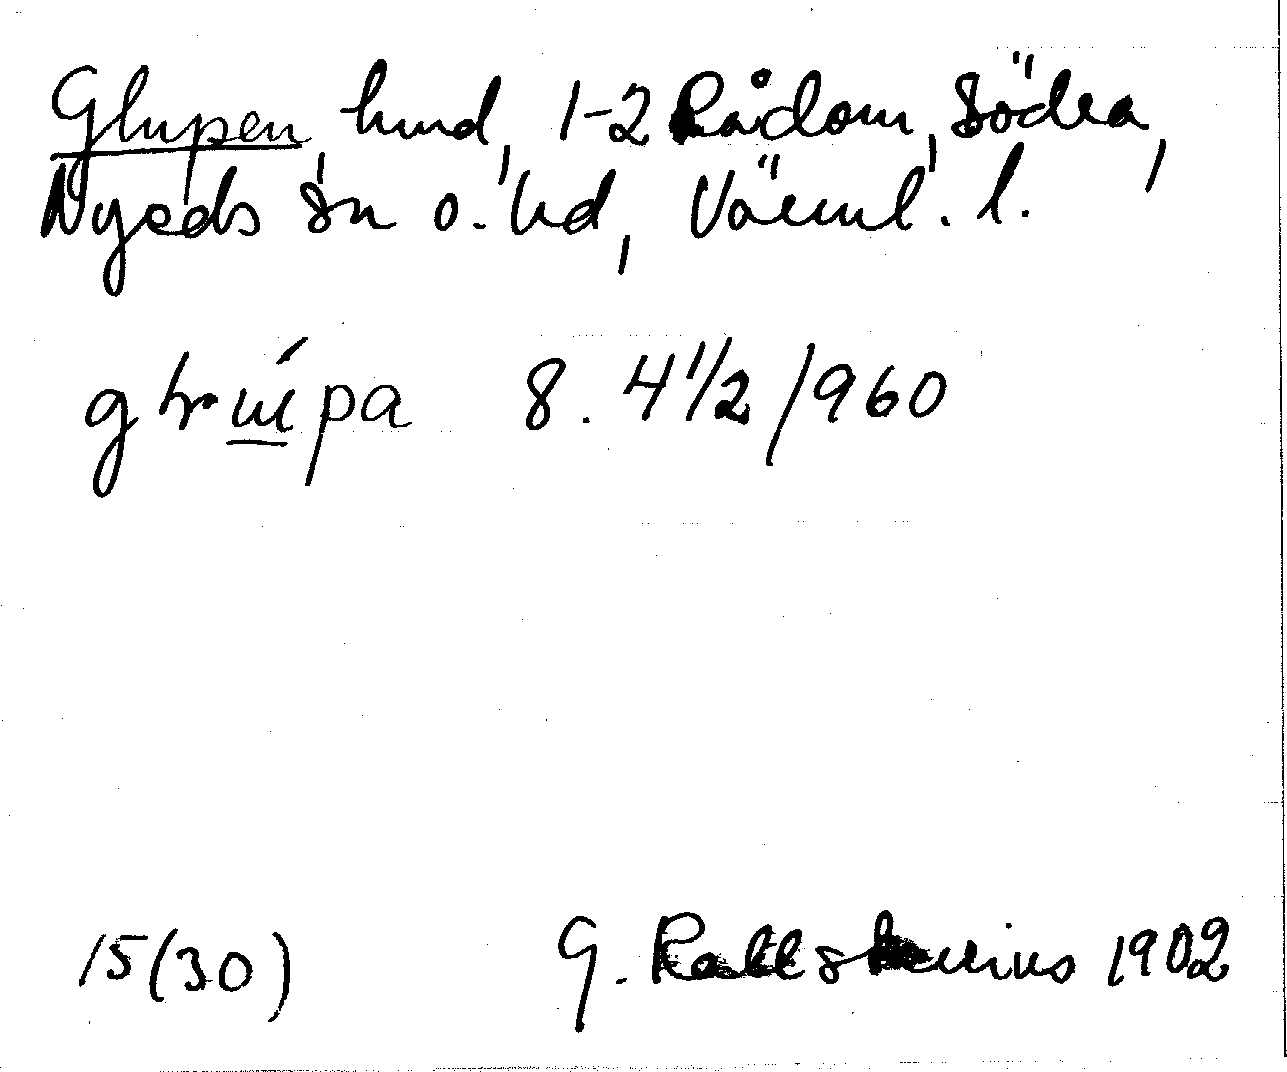 Glupen, hmd, 1-2 Rådom, Södra,
Nyeds sn o. hd, Värml. l.
8. 4 1/2 / 960
15 (30) G. Kallstenius 1902